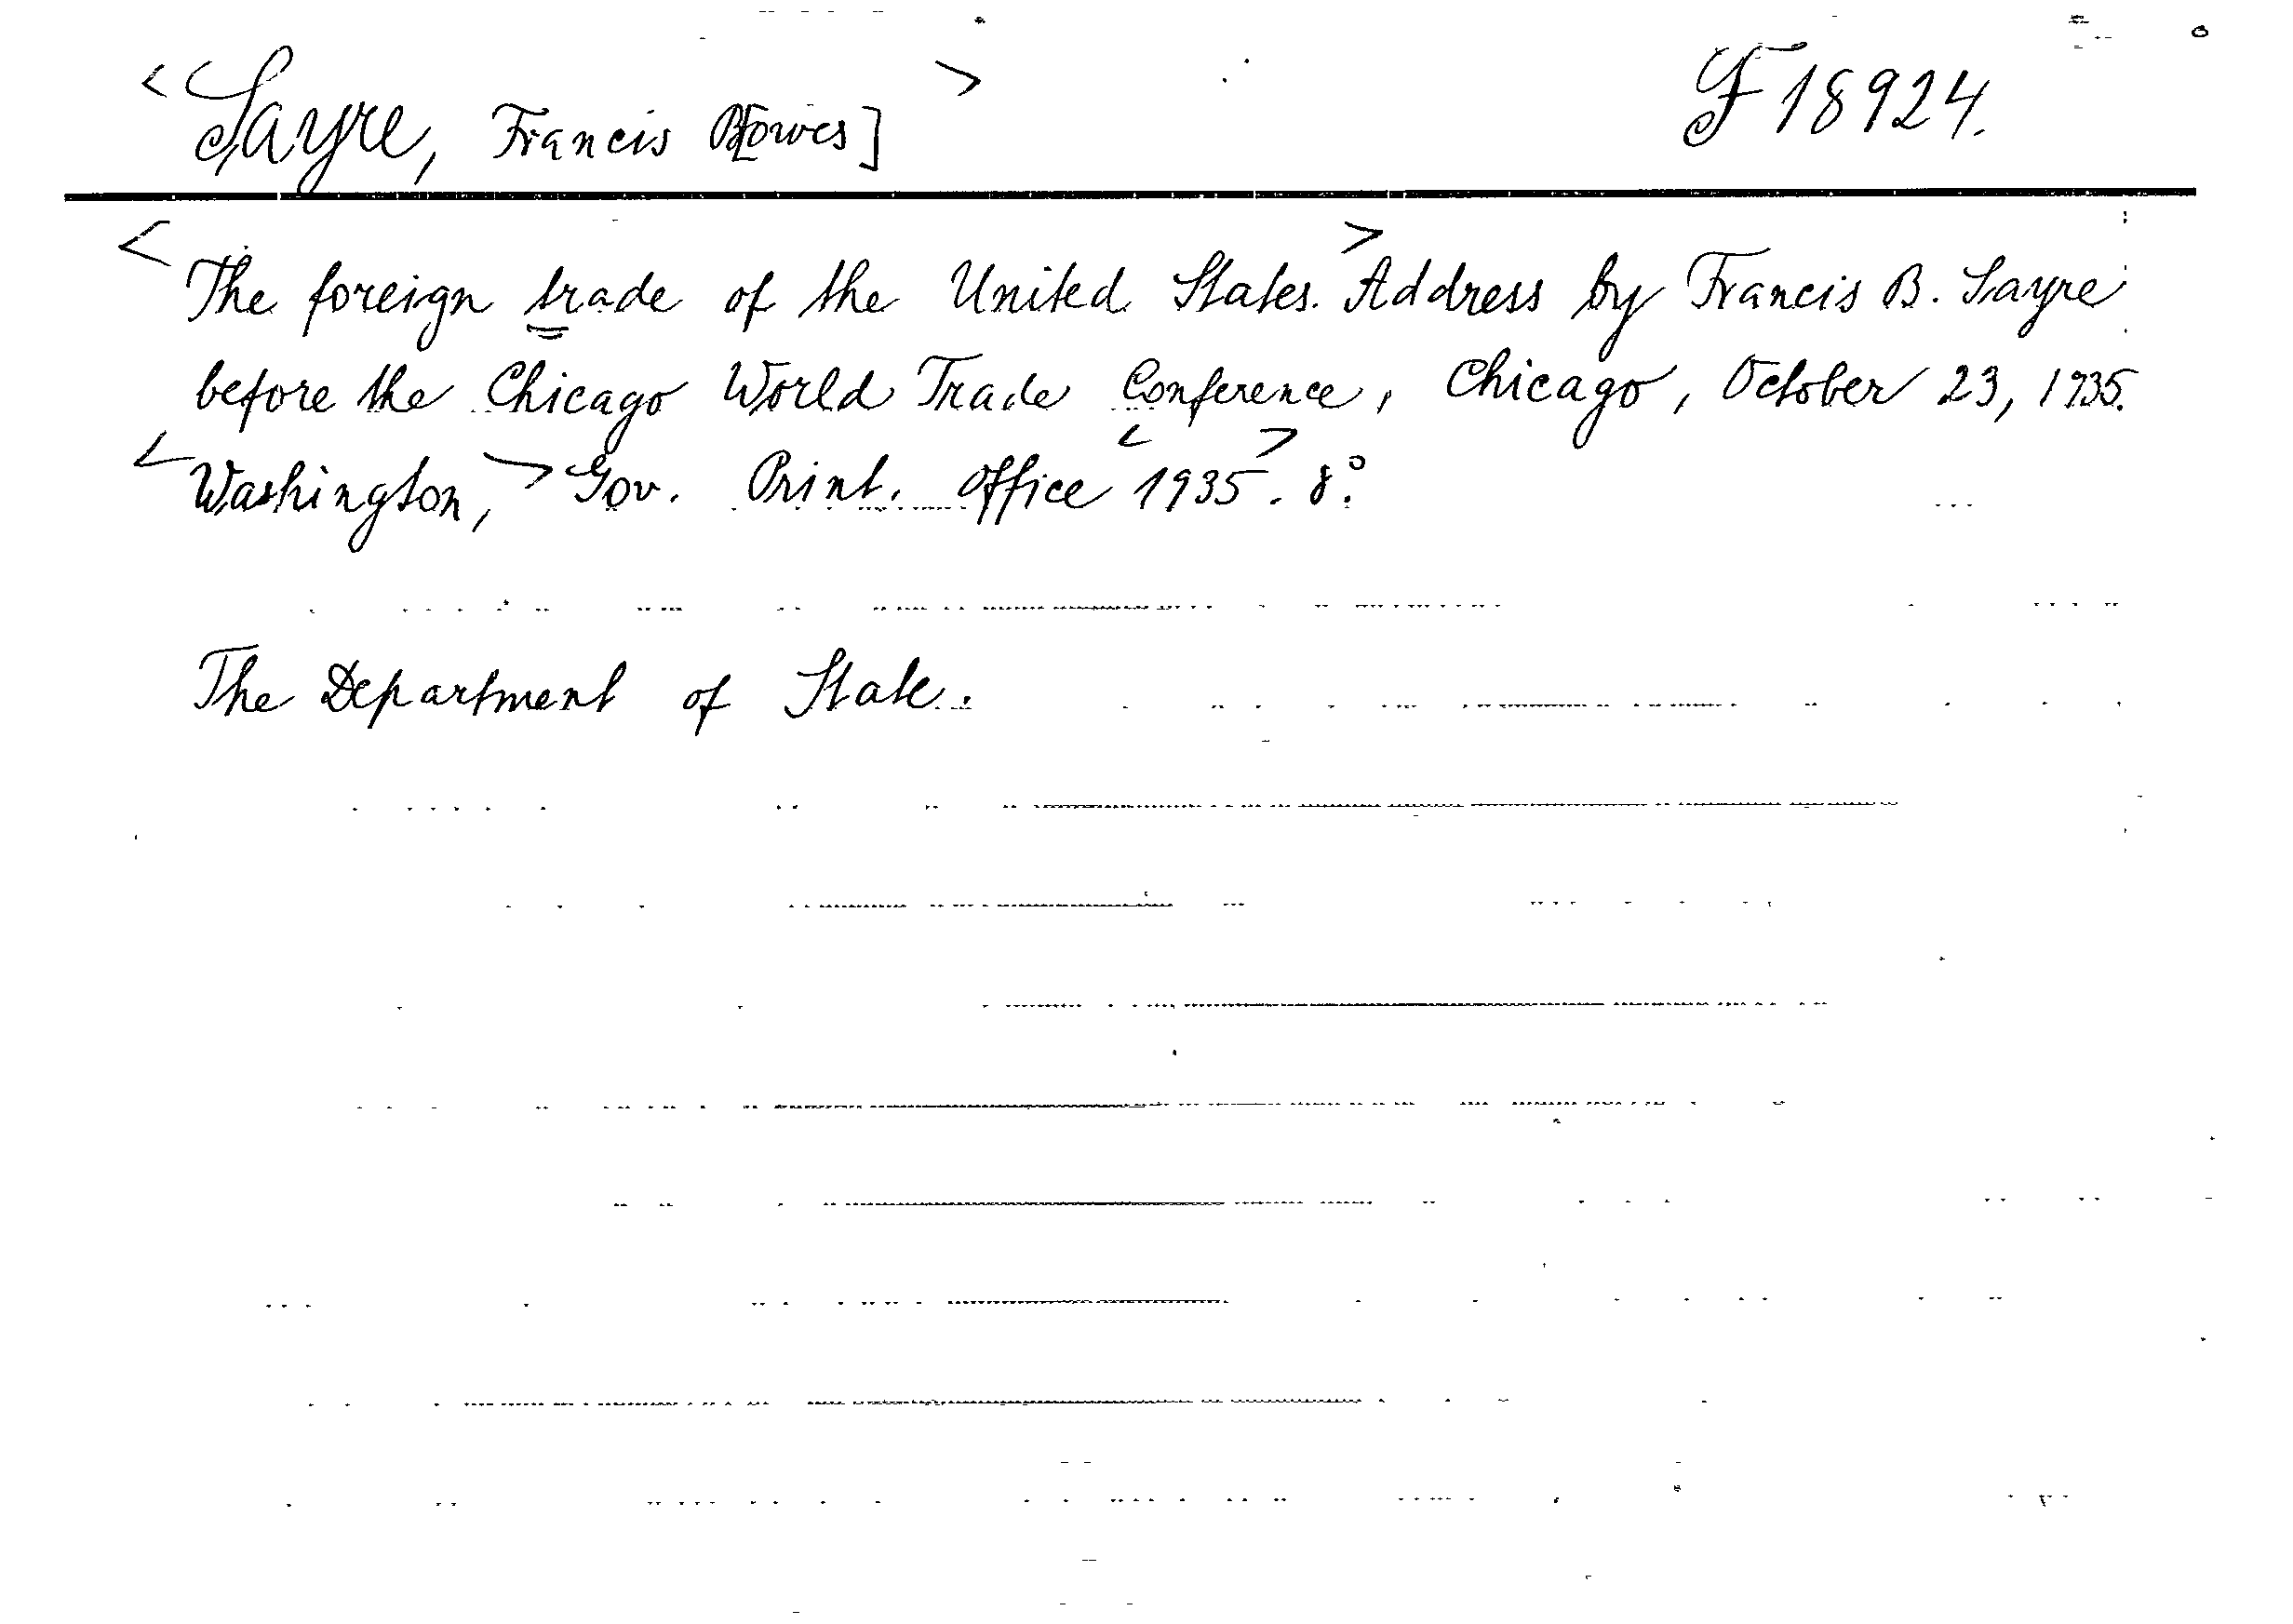 <Sayre, Francis B[owes]> F 18924.
<The foreign trade of the United States.> Address by Francis B. Sayre
before the Chicago World Trade Conference, Chicago, October 23, 1935.
<Washington,> Gov. Print. Office <1935>. 8°.
The Department of State.